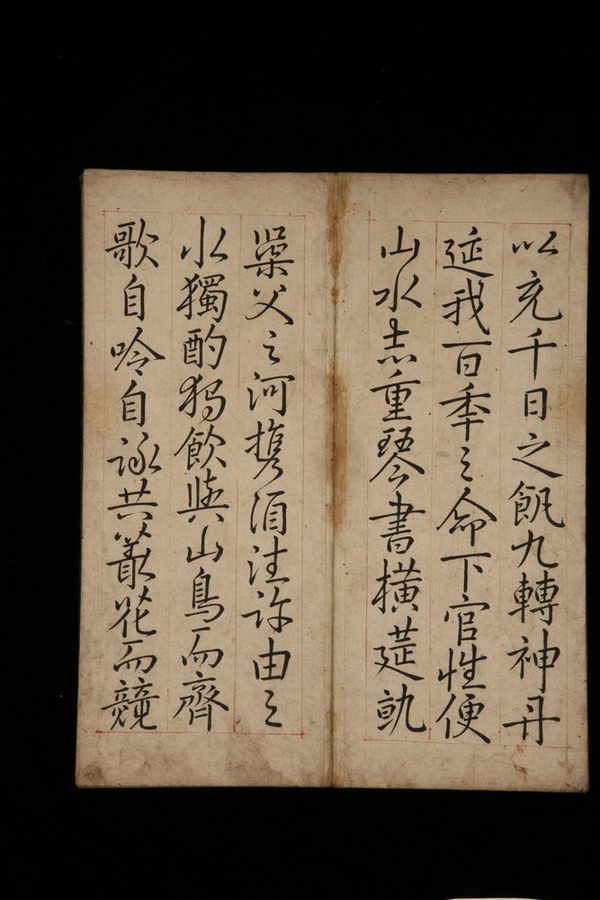 以充千日之飢九轉神丹
延我百秊之命下官性便
山水志重琴書橫莚就
巢父之河携酒往許由之
水獨酌独飲與山鳥而齊
歌自吟自詠共叢花而競